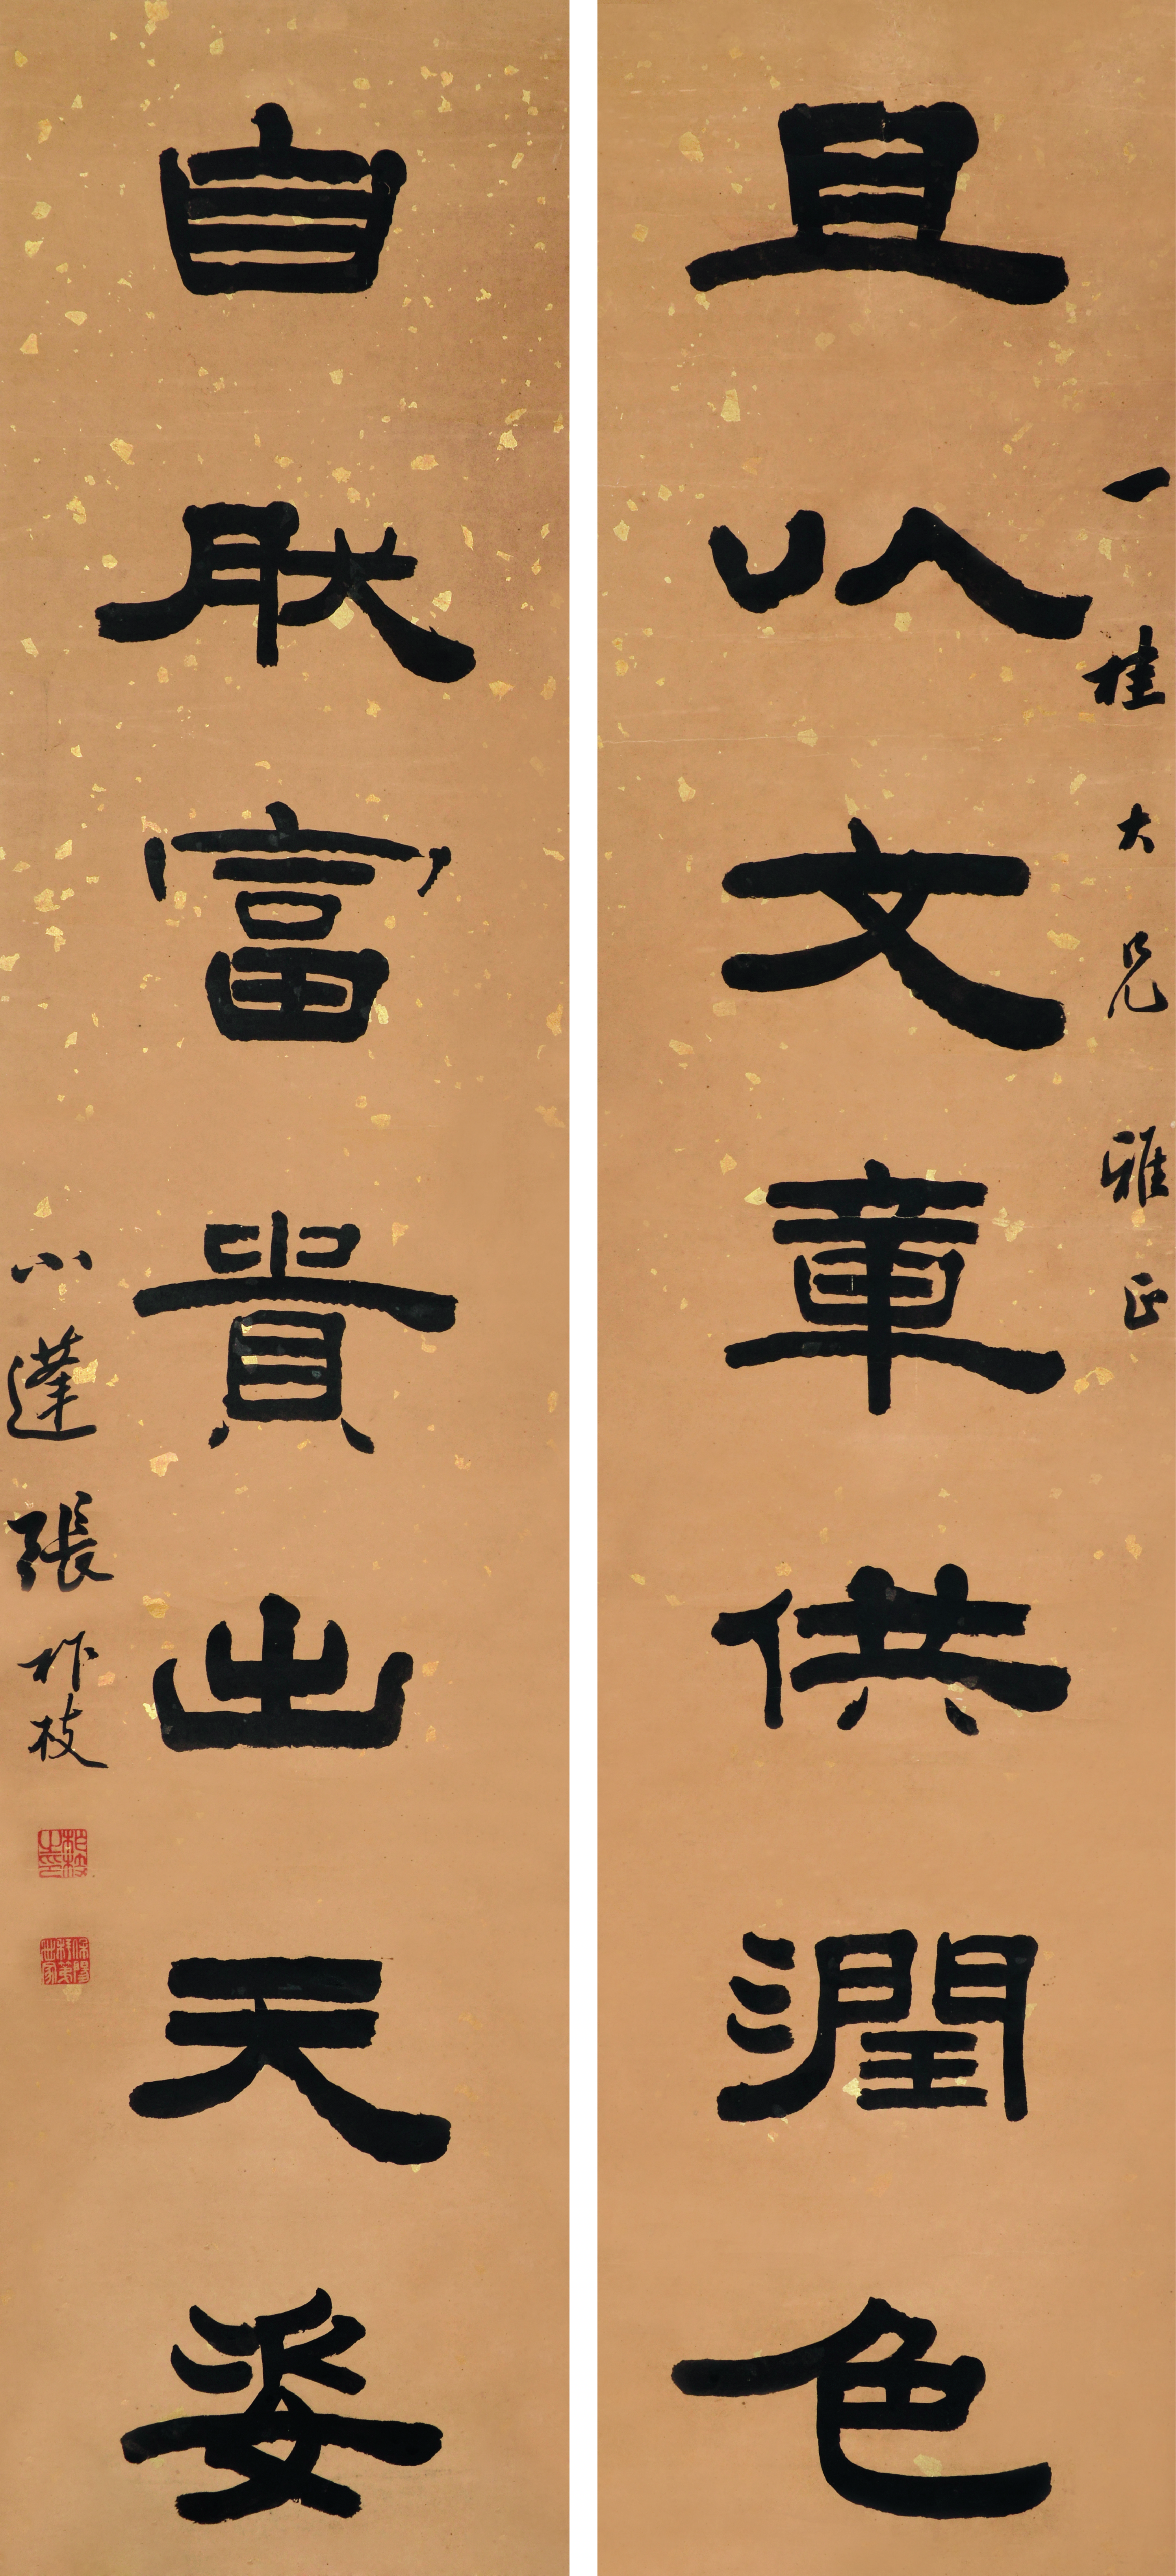 一桂大兄雅正
且以文章供潤色
自肰富貴出天姿
小蓬張柞枝